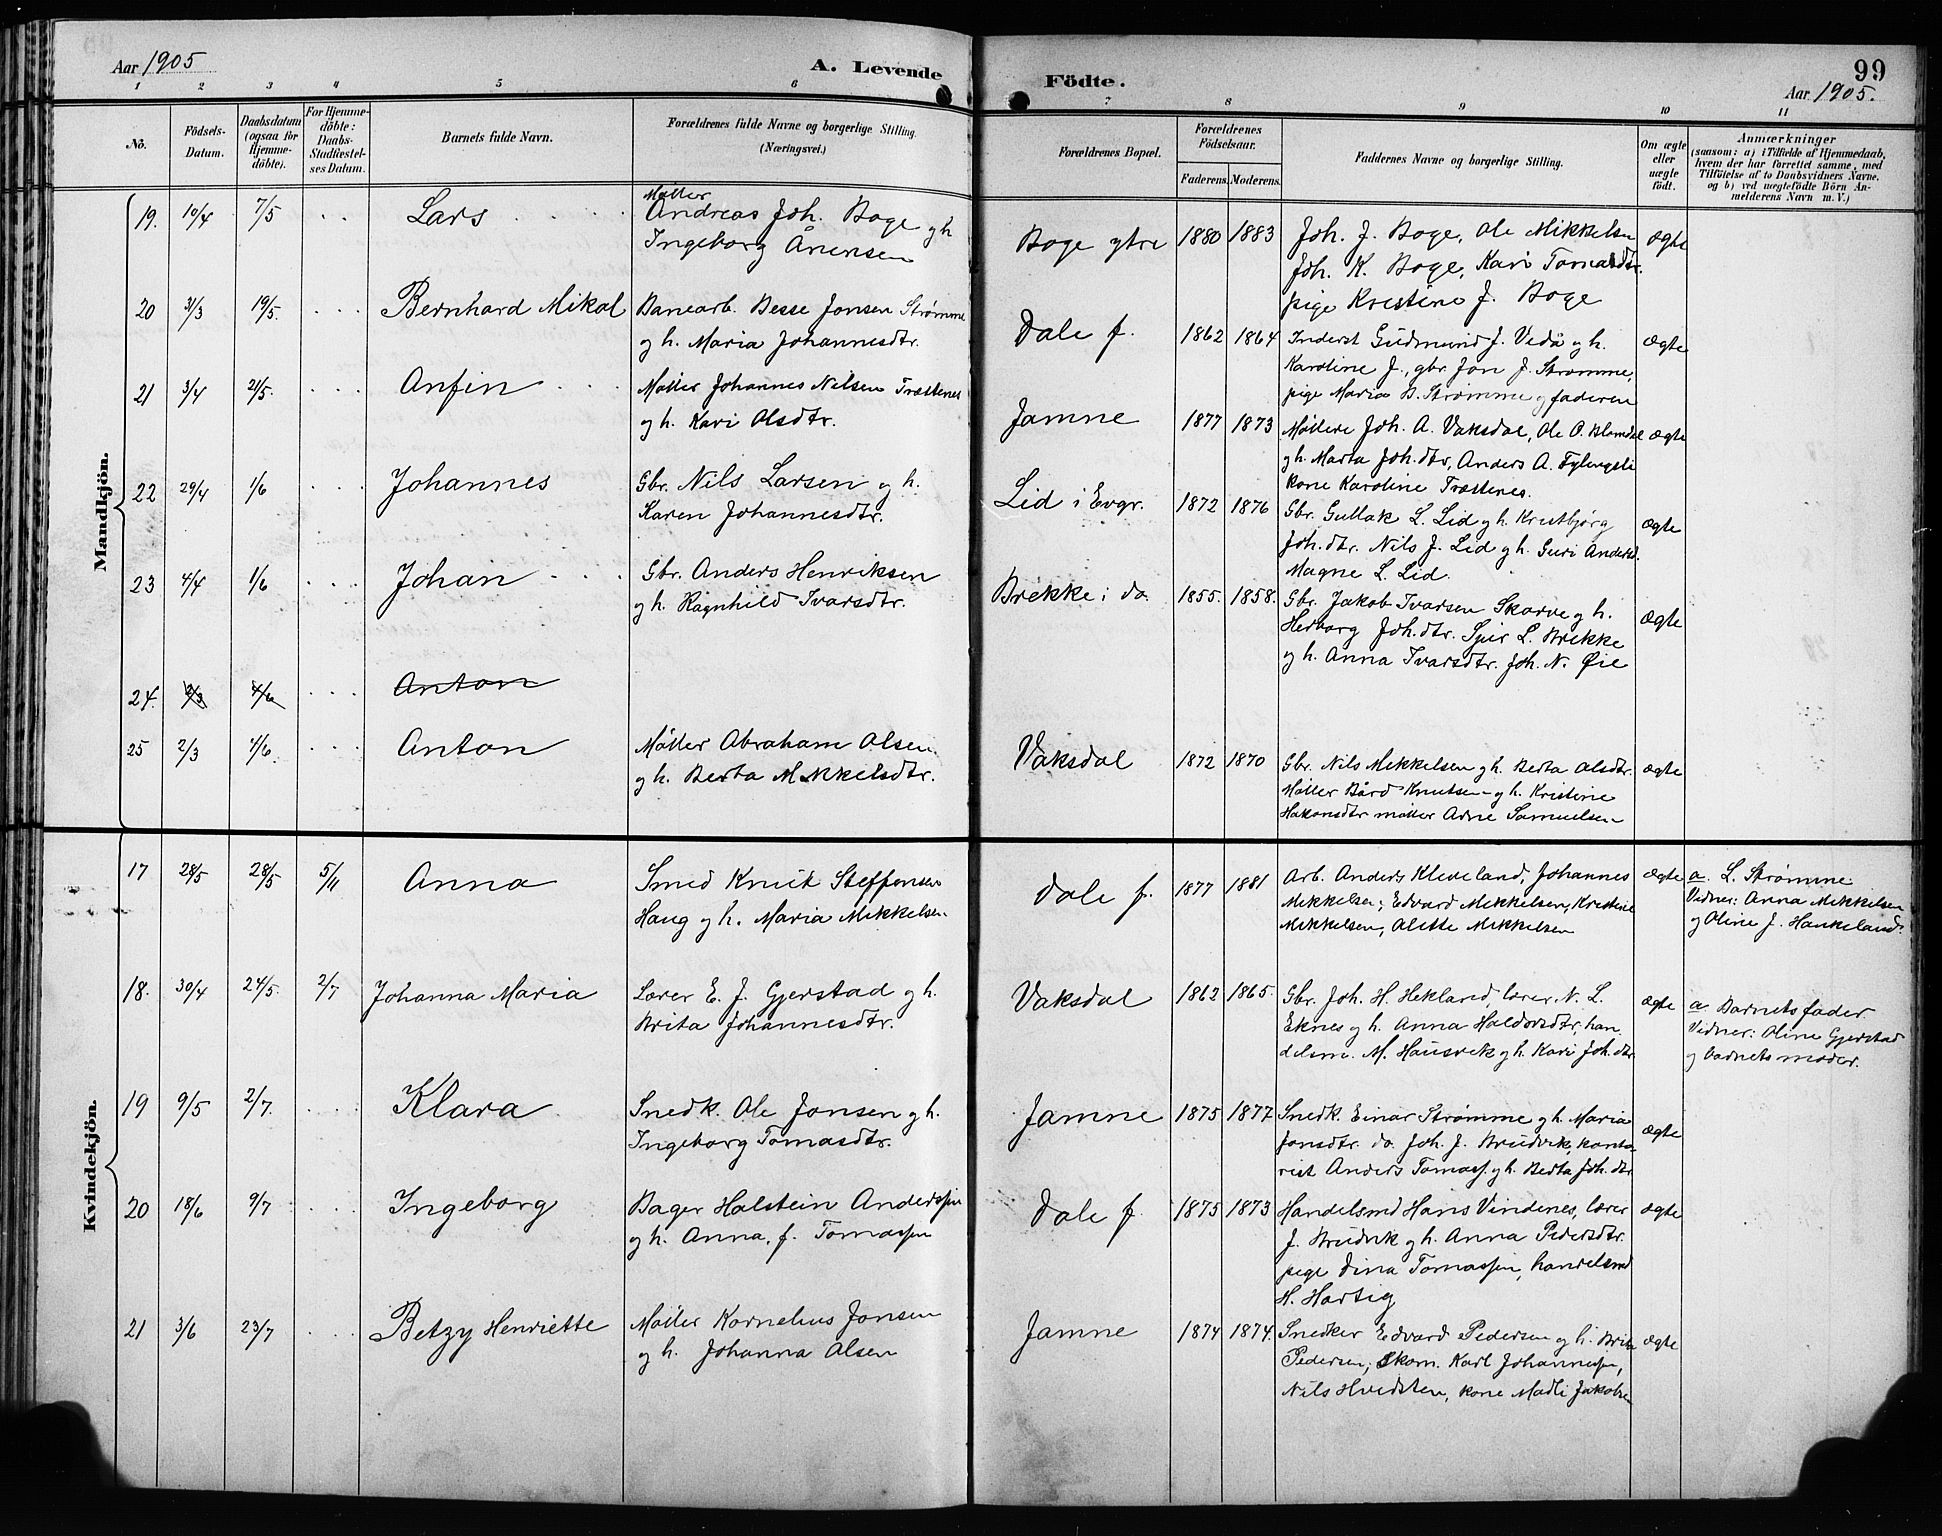 Aar 1905
A. Levende
Födte.
99
Aar 1905.
1 2 3 4 5 6 7 8 9 10 11
No.
Födsels-Datum.
Daabsdatum (ogsaa för Hjemmedöbte).
For Hjemmedöbte: Daabs-Stadfæstelses Datum.
Barnets fulde Navn.
Forældrenes fulde Navne og borgerlige Stilling. (Næringsvei.)
Forældrenes Bopæl.
Forældrenes Födselsaar.
Faderens. Moderens.
Faddernes Navne og borgerlige Stilling.
Om ægte eller uægte födt.
Anmærkninger
(saasom: a) i Tilfælde af Hjemmedaab, hvem der har forrettet samme, med Tilföielse af to Daabsvidners Navne, og b) ved uægtefödte Börn Anmelderens Navn m. V.)
Mandkjön.
19. 10/4 7/5 Lars
Møller
Andreas Joh. Boge gh
Ingeborg Ånensen
Boge ytre 1880 1883
Joh. J. Boge, Ole Mikkelsen
Joh. K. Boge, Kari Tomasdtr.
pige Kristine J. Boge
ægte
20 3/3 19/5. Bernhard Mikal
Banearb. Besse Jonsen Strømme
og h. Maria Johannesdtr.
Dale f. 1862 1864
Inderst Gudmund J. Vedå og h.
Karoline J., gbr. Jon J. Strømme,
pige Maria B. Strømme og faderen
ægte
21 3/4 21/5. Anfin
Møller Johannes Nilsen Træstenes
og h. Kari Olsdtr.
Jamne 1877 1873
Møllere Joh. A. Vaksdal, Ole O. Blomdal
gh. Marta Joh.dtr, Anders A. Fylingsli
kone Karoline Træstenes.
ægte
22 29/4 1/6 Johannes
Gbr. Nils Larsen og h.
Karen Johannesdtr.
Lid i Evgr. 1872 1876
Gbr. Gullak L. Lid gh. Kristbjørg
Joh.dtr. Nils J. Lid gh. Guri Andersd.
Magne L. Lid.
ægte
23 4/4 1/6 Johan
Gbr. Anders Henriksen
og h. Ragnhild Ivarsdtr.
Brekke i do. 1855. 1858.
Gbr. Jakob Ivarsen Skarve og h.
Herborg Joh.dtr. Sjur L. Brekke
og h. Anna Ivarsdtr. Joh. N. Øie
ægte
24. 2/3 4/6 Anton
25 2/3 4/6. Anton
Møller Abraham Olsen
og h. Berta Mikkelsdtr.
Vaksdal 1872 1870
Gbr. Nils Mikkelsen gh. Berta Olsdtr.
Møller Bård Knutsen gh. Kristine
Hakonsdtr møller Arne Samuelsen
ægte
Kvindekjön.
17 28/5 28/5 5/11 Anna
Smed Knut Steffensen
Haug og h. Maria Mikkelsen
Dale f. 1877 1881
Arb. Anders Kleveland, Johannes
Mikkelsen, Edvard Mikkelsen, Kristine
Mikkelsen, Alette Mikkelsen
ægte
a. L. Strømme
Vidner: Anna Mikkelsen
og Oline J. Haukeland.
18. 30/4 24/5. 2/7 Johanna Maria
Lærer E. J. Gjerstad og h.
Brita Johannesdtr.
Vaksdal 1862 1865.
Gbr. Joh. H. Hekland, lærer N. L.
Eknes og h. Anna Haldorsdtr, han
delsm. M. Hausvik og h. Kari Joh.dtr
ægte
a. Barnets fader
Vidner: Oline Gjerstad
og barnets moder.
19 9/5 2/7. Klara
Snedk. Ole Jonsen og h.
Ingeborg Tomasdtr.
Jamne 1875 1877
Snedk. Einar Strømme og h. Maria
Jonsdtr. do. Joh. J. Brudvik, konto
rist Anders Tomass. gh. Berta Joh.dtr
ægte
20 18/6 9/7 Ingeborg
Bager Halstein Anderssen
og h. Anna, f. Tomassen
Dale f. 1875 1873
Handelsmd Hans Vindenes, lærer
J. Brudvik og h. Anna Pedersdtr.
pige Dina Tomassen, handelsmd
H. Hartig
ægte
21 3/6 23/7 Betzy Henriette
Møller Kornelius Jonsen
og h. Johanna Olsen
Jamne 1874 1874.
Snedker Edvard Pedersen og h. Brita
Pedersen, skom. Karl Johannessen,
Nils Hvidsten, kone Madli Jakobsen
ægte